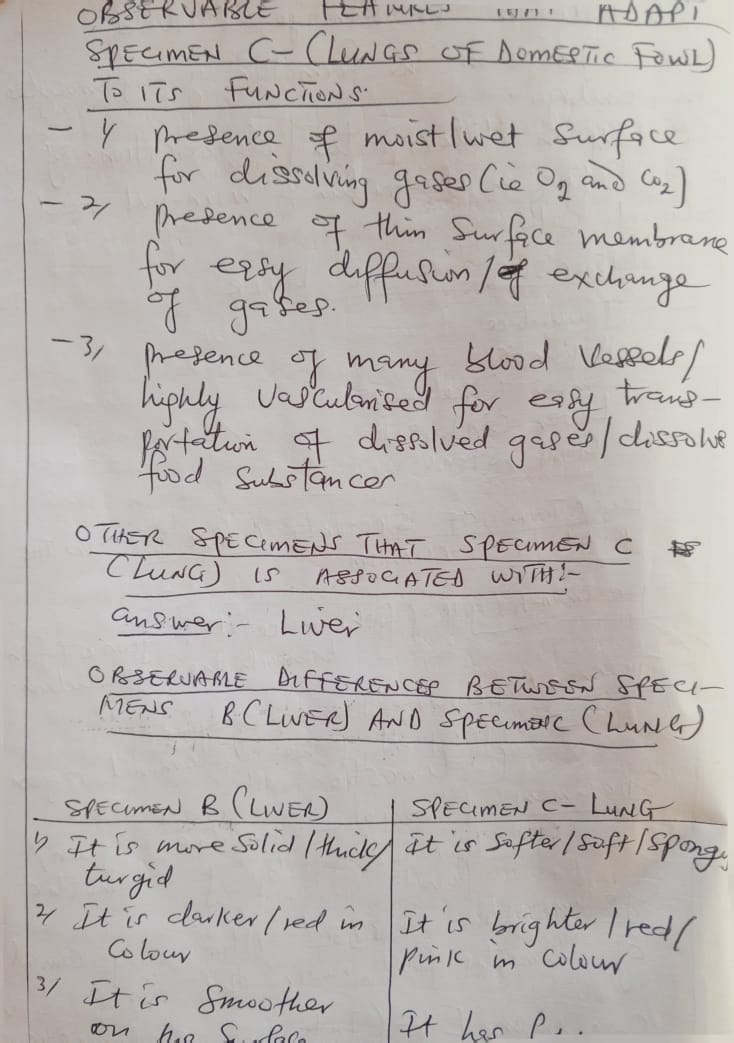 OBSERVABLE FEATURES ADAPT
SPECIMEN C- (LUNGS OF DOMESTIC FOWL)
TO ITS FUNCTIONS.
- 1/ presence of moist/wet surface
for dissolving gases (ie O2 and CO2)
- 2/ presence of thin surface membrane
for easy diffusion/of exchange
of gases.
- 3/ presence of many blood vessels/
highly vascularised for easy trans-
portation of dissolved gases/dissolve
food substances
OTHER SPECIMENS THAT SPECIMEN C
(LUNG) IS ASSOCIATED WITH:-
answer:- Liver
OBSERVABLE DIFFERENCES BETWEEN SPECI-
MENS B(LIVER) AND SPECIMEN C (LUNG)
SPECIMEN B (LIVER)
1/ It is more solid/thick/
turgid
2/ It is darker/red in
colour
3/ It is smoother
on
SPECIMEN C- LUNG
It is softer/soft/spongy
It is brighter/red/
pink in colour
It has